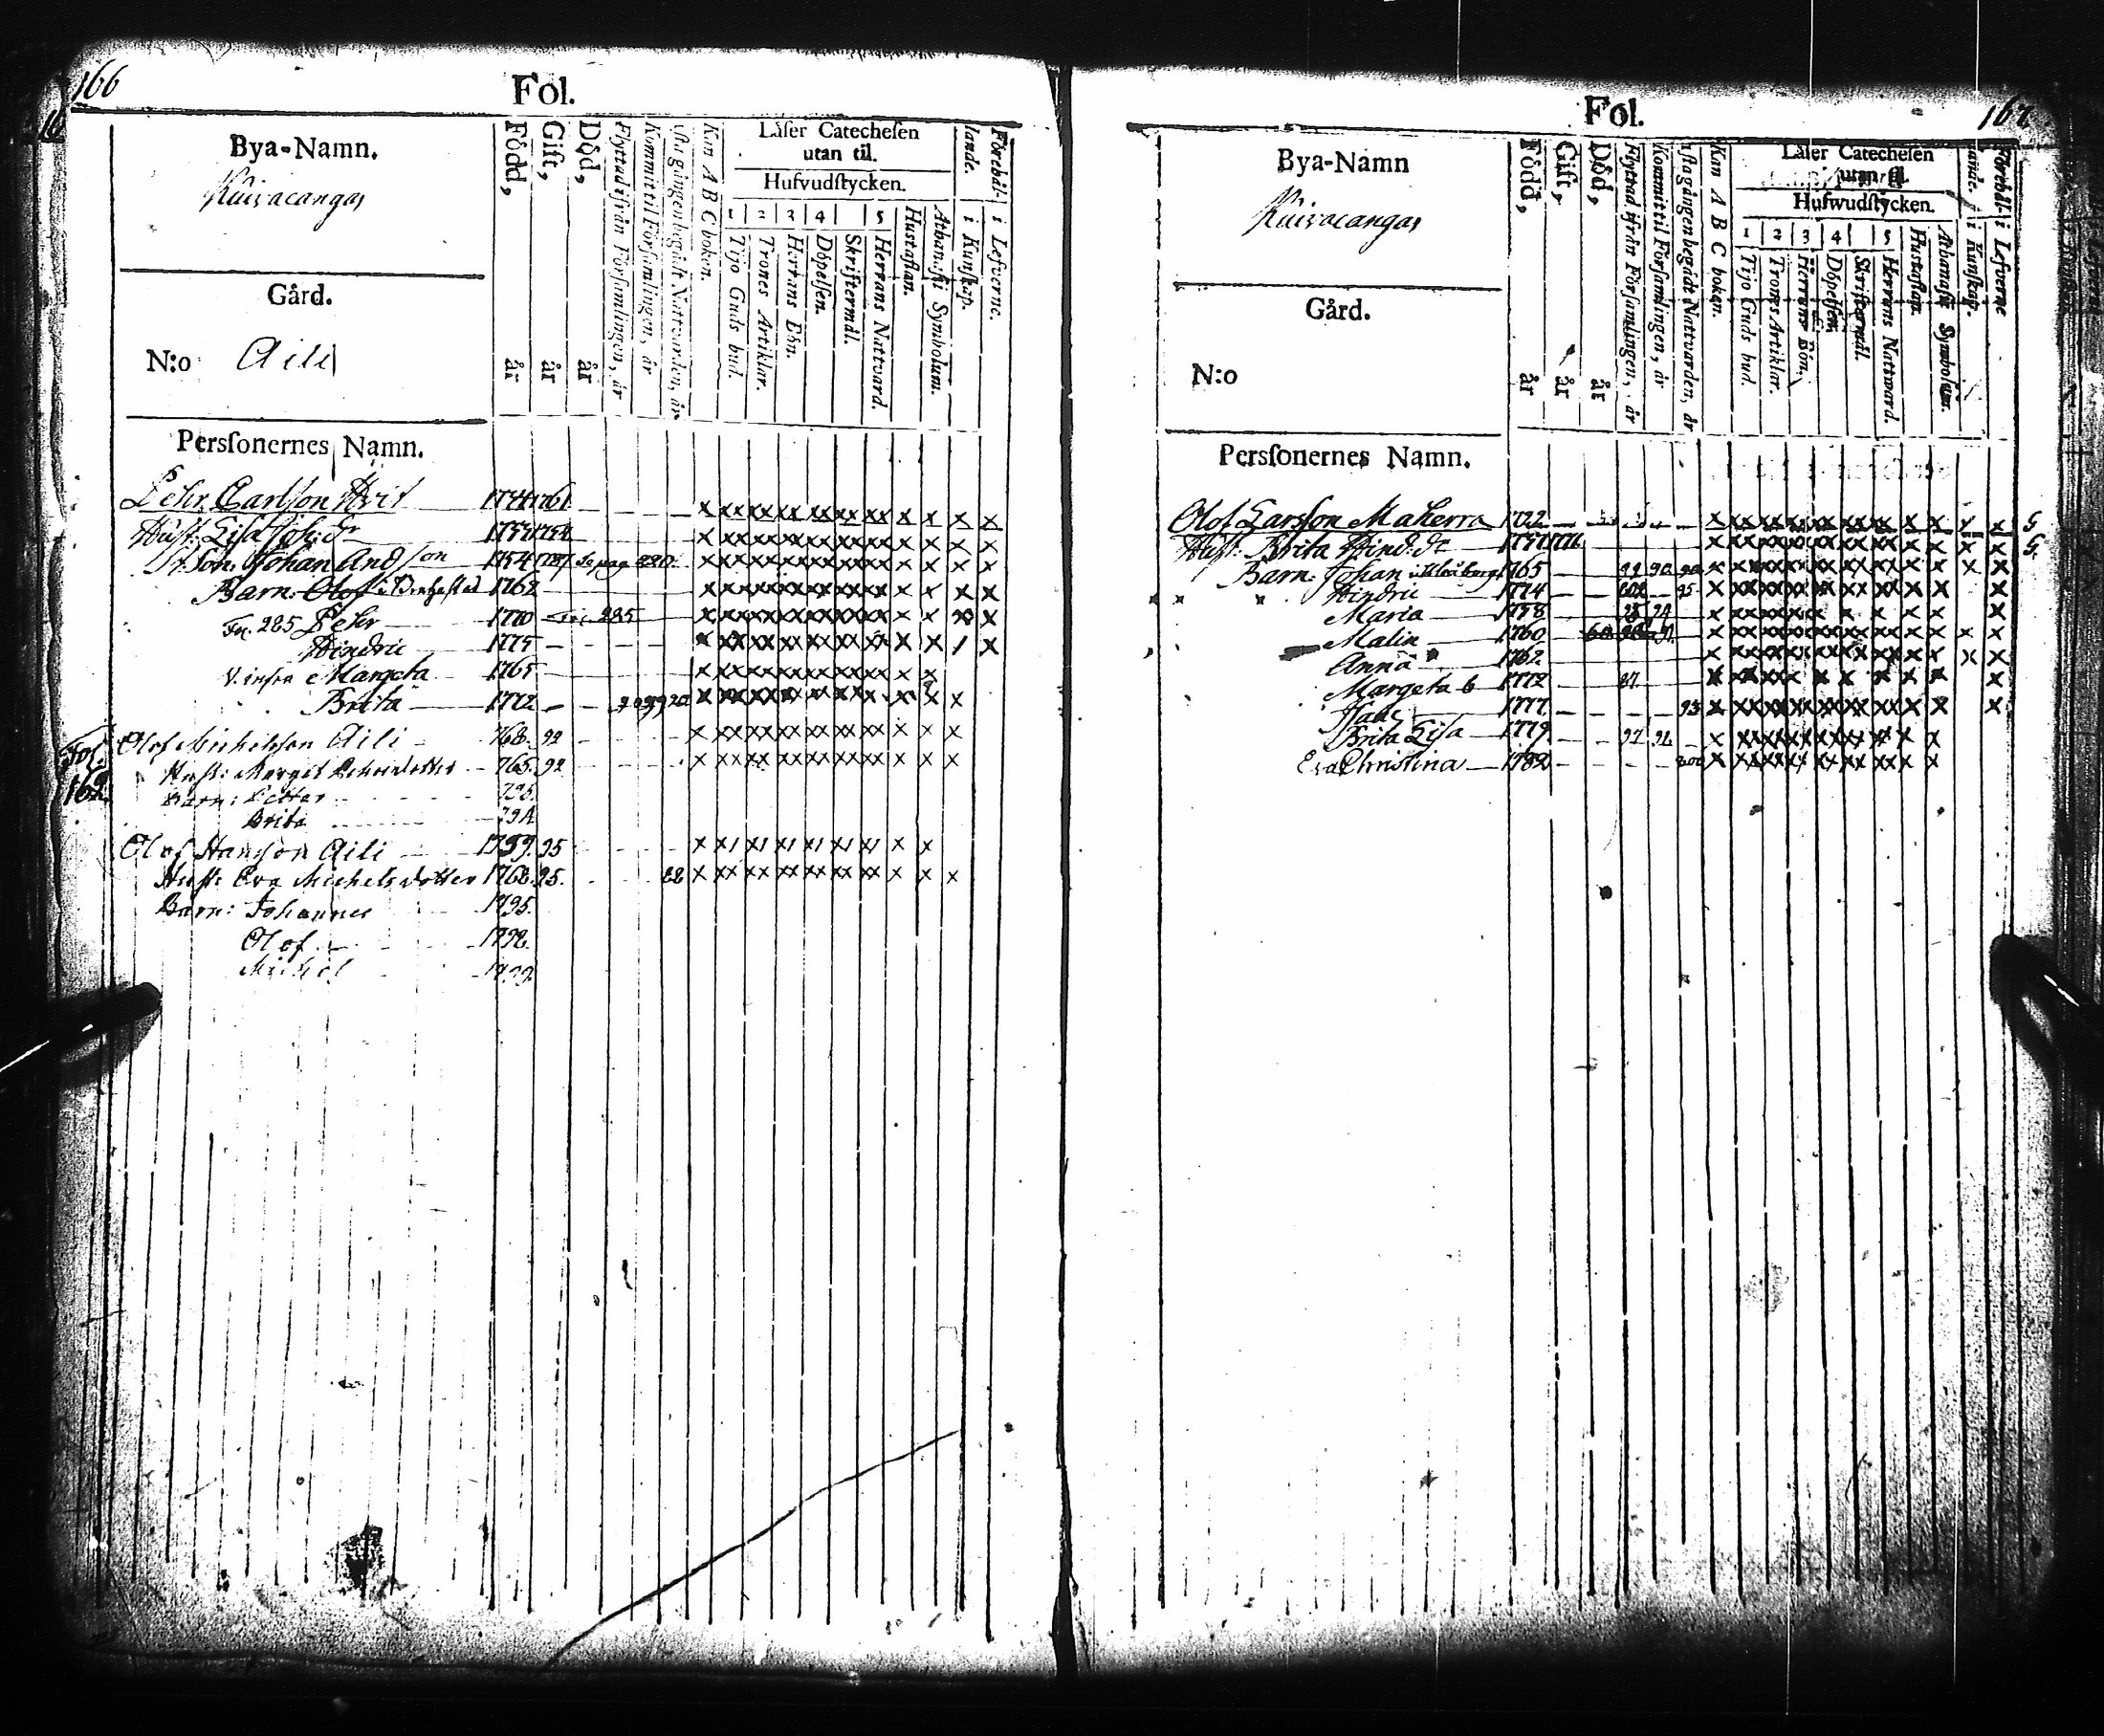 166
Fol.
Bya-Namn.
Kuivacangas
Gård.
N:o Aili
Född, år
Gift, år
Död, år
Flyttad ifrån Församlingen, år
Kommit til Församlingen, år
1sta gången begådt Nattvarden, år
Kan A B C boken.
Låser Catechesen
utan til.
Hufvudstycken.
1 2 3 4 5
Tijo Guds bud.
Trones Artiklar.
Herrans Bön.
Döpelsen.
Skriftermål.
Herrans Nattvard.
Hustaflan.
Athanasii Symbolum.
i Kunskap.
i Lefverne.
Perssonernes Namn.
Pehr Carlsson
Hust: Lisa Joh: dr
Johan Andsson 1754 1787 Se pag 220
Barn: Olof 1768
Fn. 285 Pehr 1770 285
Hindric 1775
V. infra Margeta 1765
Brita 1772
Olof Michelsson Aili 768. 92
Hust: Margit Pehrsdotter 765. 92
Fol.
162
Barn: Petter 795.
Brita 794
Olof Hansson Aili 1759. 95
Hust: Eva Michelsdotter 1768. 95. 88
Barn: Johannes 1795.
Olof 1798.
Michel 1799.
Fol.
167
Bya-Namn
Kuivacangas
Gård.
N:o
Född, år
Gift, år
Död, år
Flyttad ifrån Församlingen, år
Kommit til Församlingen, år
1sta gången begådt Nattvarden, år
Kan A B C boken.
Låser Catechesen
utan til.
Hufwudstycken.
1 2 3 4 5
Tijo Guds bud.
Trones Artiklar.
Herrans Bön.
Döpelsen
Skriftermål.
Herrans Nattward.
Hustaflan.
Athanasii Symbolum.
i Kunskap.
i Lefverne
Perssonernes Namn.
Olof Larsson Makerra 1722
Hust: Brita Hind: dr
Barn: Johan i Uleåborg 1765
Hindric 1774
Maria 1758
Malin 1760
Anna 1762
Margeta 1772 87
1777 93
Brita Lisa 1779
Eva Christina 1782